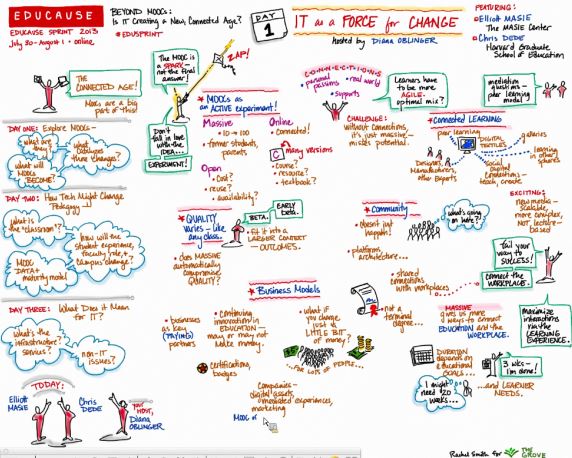 EDUCAUSE
EDUCAUSE SPRINT 2013
July 30 - August 1 • online
BEYOND MOOCs:
Is IT Creating a New Connected Age?
#EDUSPRINT
DAY
1
IT as a FORCE for CHANGE
hosted by DIANA OBLINGER
FEATURING:
Elliott MASIE
The MASIE Center
Chris DEDE
Harvard Graduate
School of Education
THE
CONNECTED AGE!
MOOCs are a big
part of this!
DAY ONE: Explore MOOCs -
what are
they?
what
catalyzes
these changes?
what will
MOOCs
BECOME?
DAY TWO: How Tech Might Change
Pedagogy
what is
the "classroom"?
how will the
student experience,
faculty role, +
campus change?
MOOC
DATA +
maturity model
DAY THREE: What Does it Mean
for IT?
what's the
infrastructure?
services?
non-IT
issues?
TODAY:
Elliott
MASIE
Chris
DEDE
YOUR
HOST,
DIANA
OBLINGER
The MOOC
is a
SPARK -
not the final
answer!
ZAP!
Don't
fall in love
with the
IDEA...
EXPERIMENT!
MOOCs as
an ACTIVE experiment!
Massive
10 → 100
former students,
parents
Online
Connected!
C
many versions
Open
cost?
reuse?
availability?
course?
resource?
textbook?
QUALITY
varies - like
any class.
BETA.
EARLY
beta.
fit it into a
LARGER CONTEXT
- OUTCOMES.
does MASSIVE
automatically
compromise
QUALITY?
Business Models
businesses
as key
(PAYING)
partners
continuing
innovation in
EDUCATION -
may or may not
make money.
what if
you change
just a
LITTLE BIT
of money?
...FOR LOTS OF PEOPLE...
certifications,
badges
companies -
digital assets,
mediated experiences,
marketing
MOOC of
CONNECTIONS
personal
passions
real world
supports
Learners have
to be more
AGILE -
optimal mix?
mediation
peer learning
model
CHALLENGE:
without connections,
it's just massive -
misses potential.
Connected LEARNING
peer learning
DIGITAL
TEXTILES
galleries
learning
in other
spheres
Designers,
Manufacturers,
other Experts
social
capital
connections -
teach, create
Community
doesn't just
happen!
platform,
architecture...
what's going
on late?
shared
connections
with workplaces
not a
terminal degree
EXCITING:
new media -
scalable,
more complex,
NOT lecture-
based
Tail your
way to
SUCCESS!
connect the
WORKPLACE.
MASSIVE
gives us more
ways to connect
EDUCATION and the
WORKPLACE.
maximize
interactions
via the
LEARNING
EXPERIENCE.
DURATION
depends on
educational
GOALS...
3 wks -
I'm done!
I might
need 20
weeks...
...and LEARNER
NEEDS.
Rachel Smith for THE GROVE